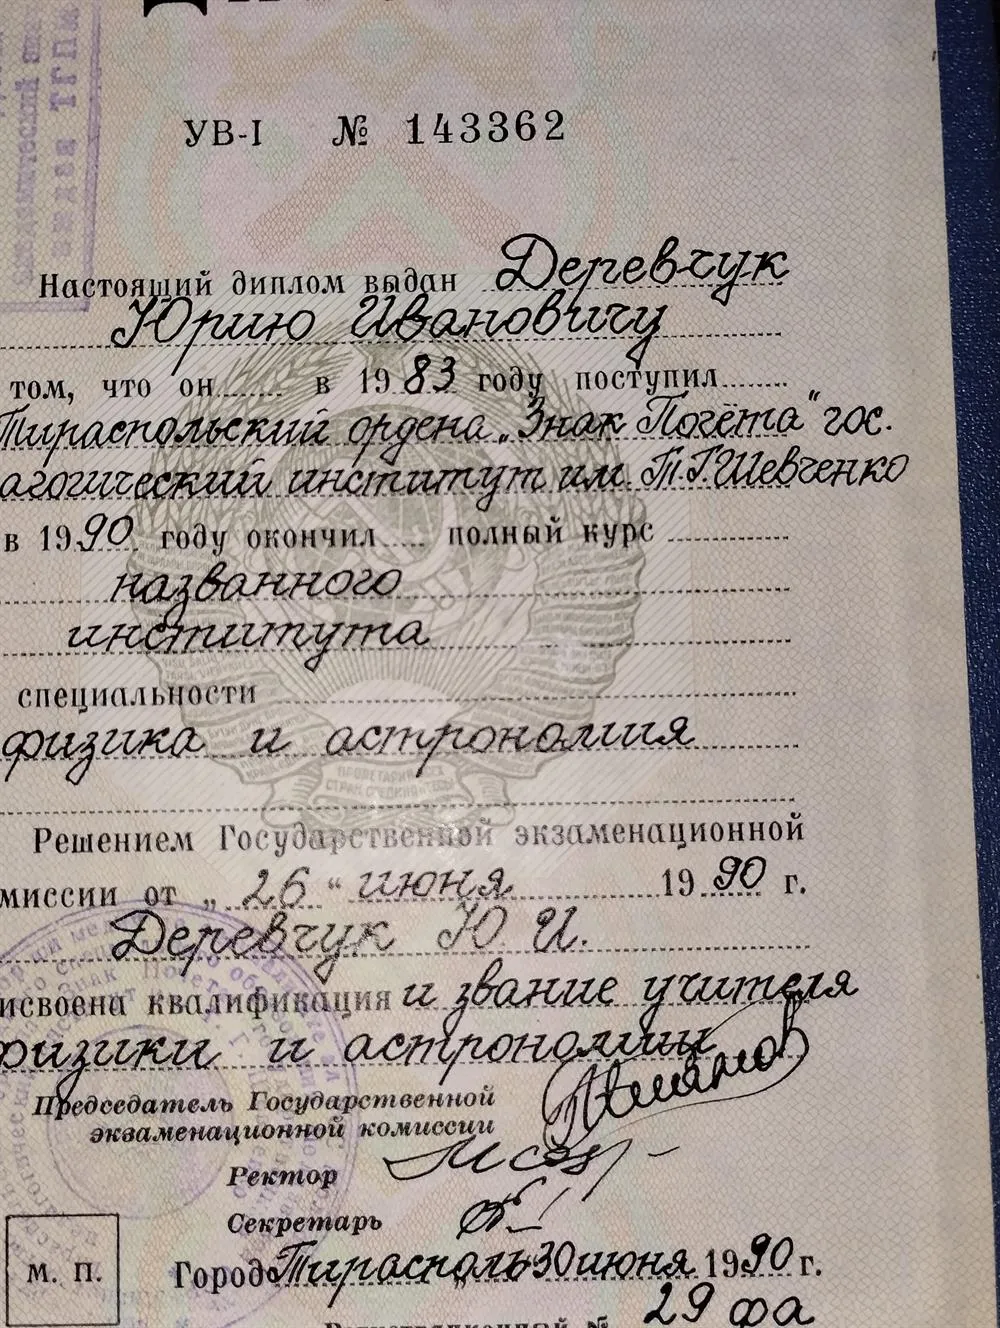 УВ-I № 143362
Настоящий диплом выдан Деревчук
Юрию Ивановичу
том, что он в 1983 году поступил
Тираспольский ордена „Знак Почёта“ гос.
агогический институт им. Т.Г.Шевченко
в 1990 году окончил полный курс
названного
института
специальности
физика и астрономия
Решением Государственной экзаменационной
миссии от „26“ июня 1990 г.
Деревчук Ю. И.
исвоена квалификация и звание учителя
физики и астрономии
Председатель Государственной
экзаменационной комиссии
Ректор
Секретарь
М. П.
Город Тирасполь 30 июня 1990 г.
29 фа